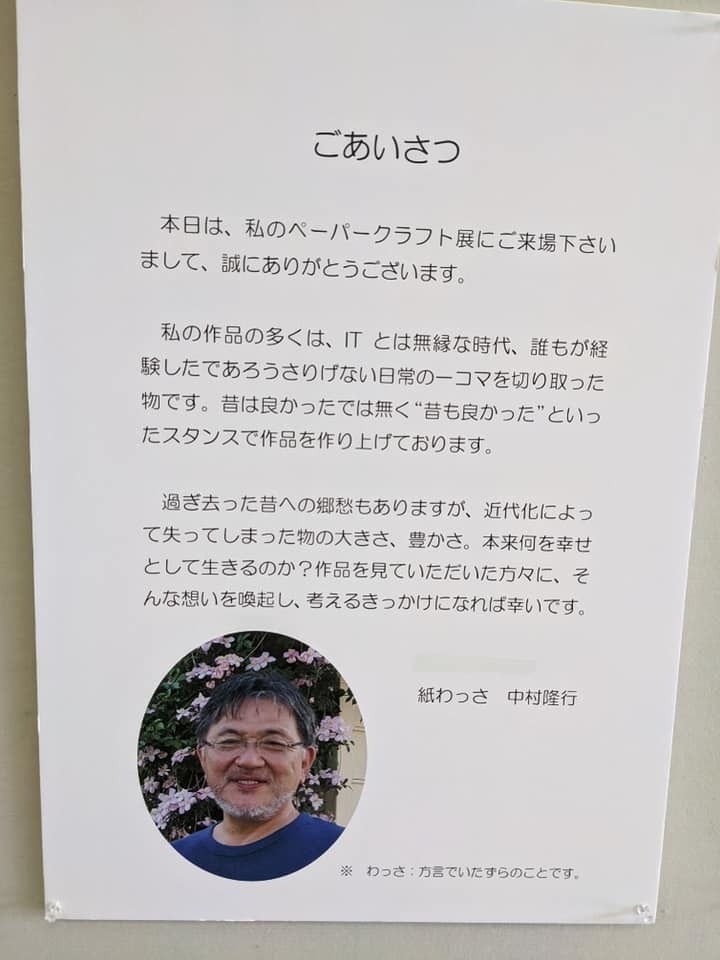 ごあいさつ
本日は、私のペーパークラフト展にご来場下さい
まして、誠にありがとうございます。
私の作品の多くは、IT とは無縁な時代、誰もが経
験したであろうさりげない日常の一コマを切り取った
物です。昔は良かったでは無く“昔も良かった”といっ
たスタンスで作品を作り上げております。
過ぎ去った昔への郷愁もありますが、近代化によっ
て失ってしまった物の大きさ、豊かさ。本来何を幸せ
として生きるのか？作品を見ていただいた方々に、そ
んな想いを喚起し、考えるきっかけになれば幸いです。
紙わっさ　中村隆行
※　わっさ：方言でいたずらのことです。